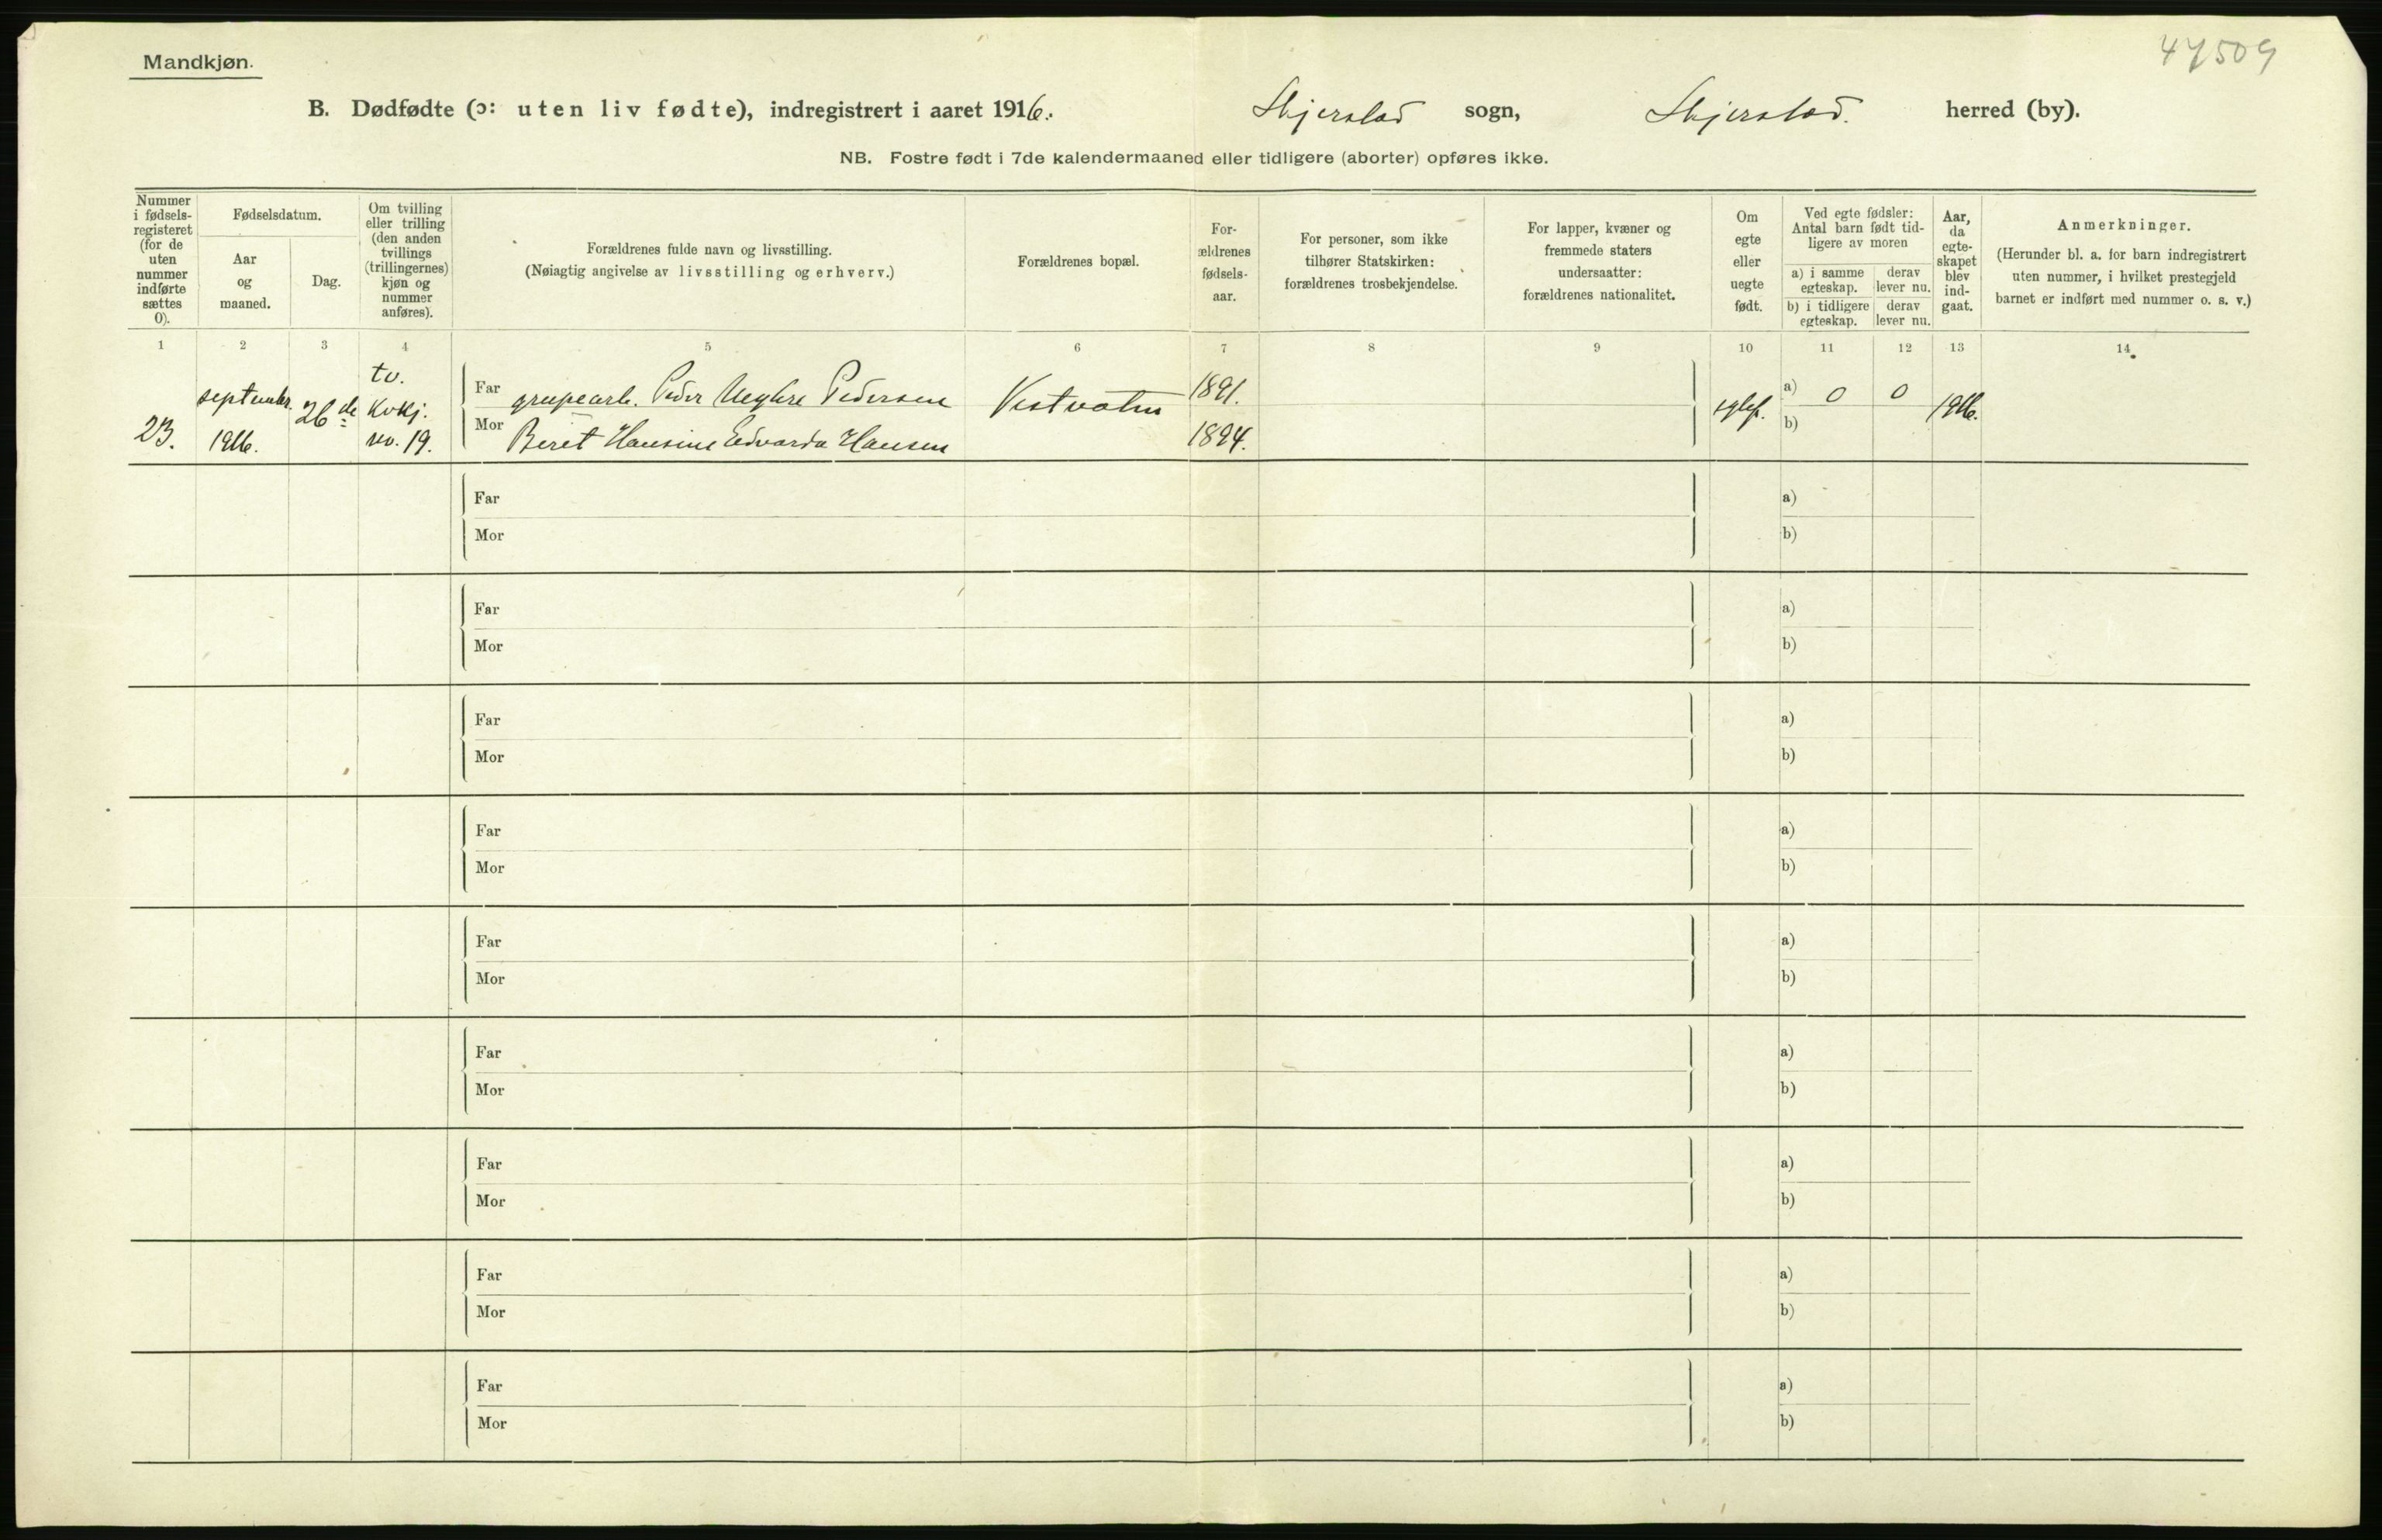 47509
Mandkjøn.
B. Dødfødte (ɔ: uten liv fødte), indregistrert i aaret 1916. Skjerstad sogn, Skjerstad. herred (by).
NB. Fostre født i 7de kalendermaaned eller tidligere (aborter) opføres ikke.
Nummer
i fødsels-
registeret
(for de
uten
nummer
indførte
sættes
0).
Fødselsdatum.
Aar
og
maaned.
Dag.
Om tvilling
eller trilling
(den anden
tvillings
(trillingernes)
kjøn og
nummer
anføres).
Forældrenes fulde navn og livsstilling.
(Nøiagtig angivelse av livsstilling og erhverv.)
Forældrenes bopæl.
For-
ældrenes
fødsels-
aar.
For personer, som ikke
tilhører Statskirken:
forældrenes trosbekjendelse.
For lapper, kvæner og
fremmede staters
undersaatter:
forældrenes nationalitet.
Om
egte
eller
uegte
født.
Ved egte fødsler:
Antal barn født tid-
ligere av moren
a) i samme
egteskap.
derav
lever nu.
b) i tidligere
egteskap.
derav
lever nu.
Aar,
da
egte-
skapet
blev
ind-
gaat.
Anmerkninger.
(Herunder bl. a. for barn indregistrert
uten nummer, i hvilket prestegjeld
barnet er indført med nummer o. s. v.)
1 2 3 4 5 6 7 8 9 10 11 12 13 14
23.
september.
1916.
26de
tv.
kvkj.
no. 19.
Far grupearb. Peder Pedersen
Mor Beret Hansine Edvarda Hansen
1891.
1894.
a) 0 0
b)
1916.
Far a)
Mor b)
Far a)
Mor b)
Far a)
Mor b)
Far a)
Mor b)
Far a)
Mor b)
Far a)
Mor b)
Far a)
Mor b)
Far a)
Mor b)
Far a)
Mor b)